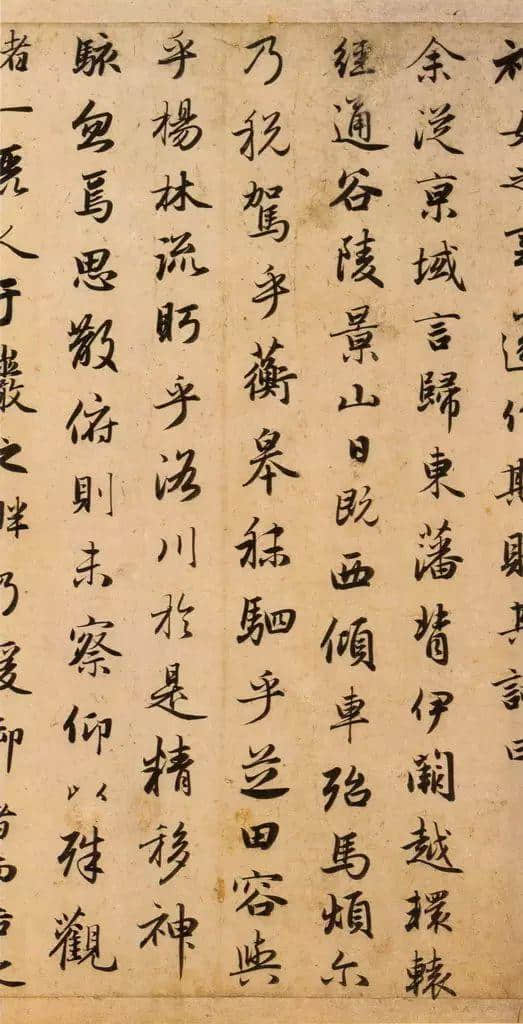 神女之事遂作斯賦其詞曰
余從京域言歸東藩背伊闕越轘轅
經通谷陵景山日既西傾車殆馬煩尔
乃稅駕乎蘅皋秣駟乎芝田容與
乎楊林流眄乎洛川於是精移神
駭忽焉思散俯則未察仰以殊觀
睹一麗人于巖之畔乃援御者而告之